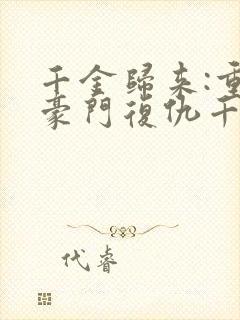 千金歸來:重
豪門復仇千
代睿